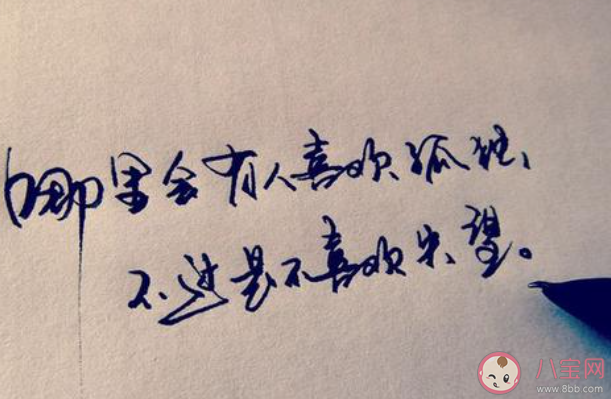 哪里会有人喜欢孤独、
不过是不喜欢失望。
八宝网
www.8bb.com